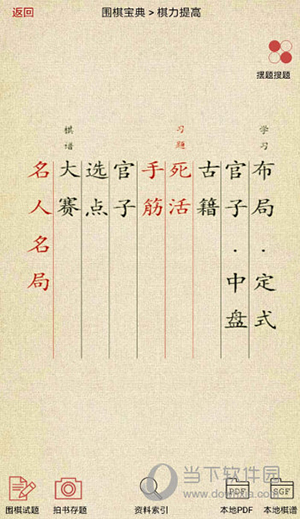 返回
围棋宝典 > 棋力提高
摆题搜题
学习
布局·定式
官子·中盘
古籍
习题
死活
手筋
官子
选点
棋谱
大赛
名人名局
当下软件园
www.downxia.com
围棋试题
拍书存题
资料索引
PDF
本地PDF
SGF
本地棋谱